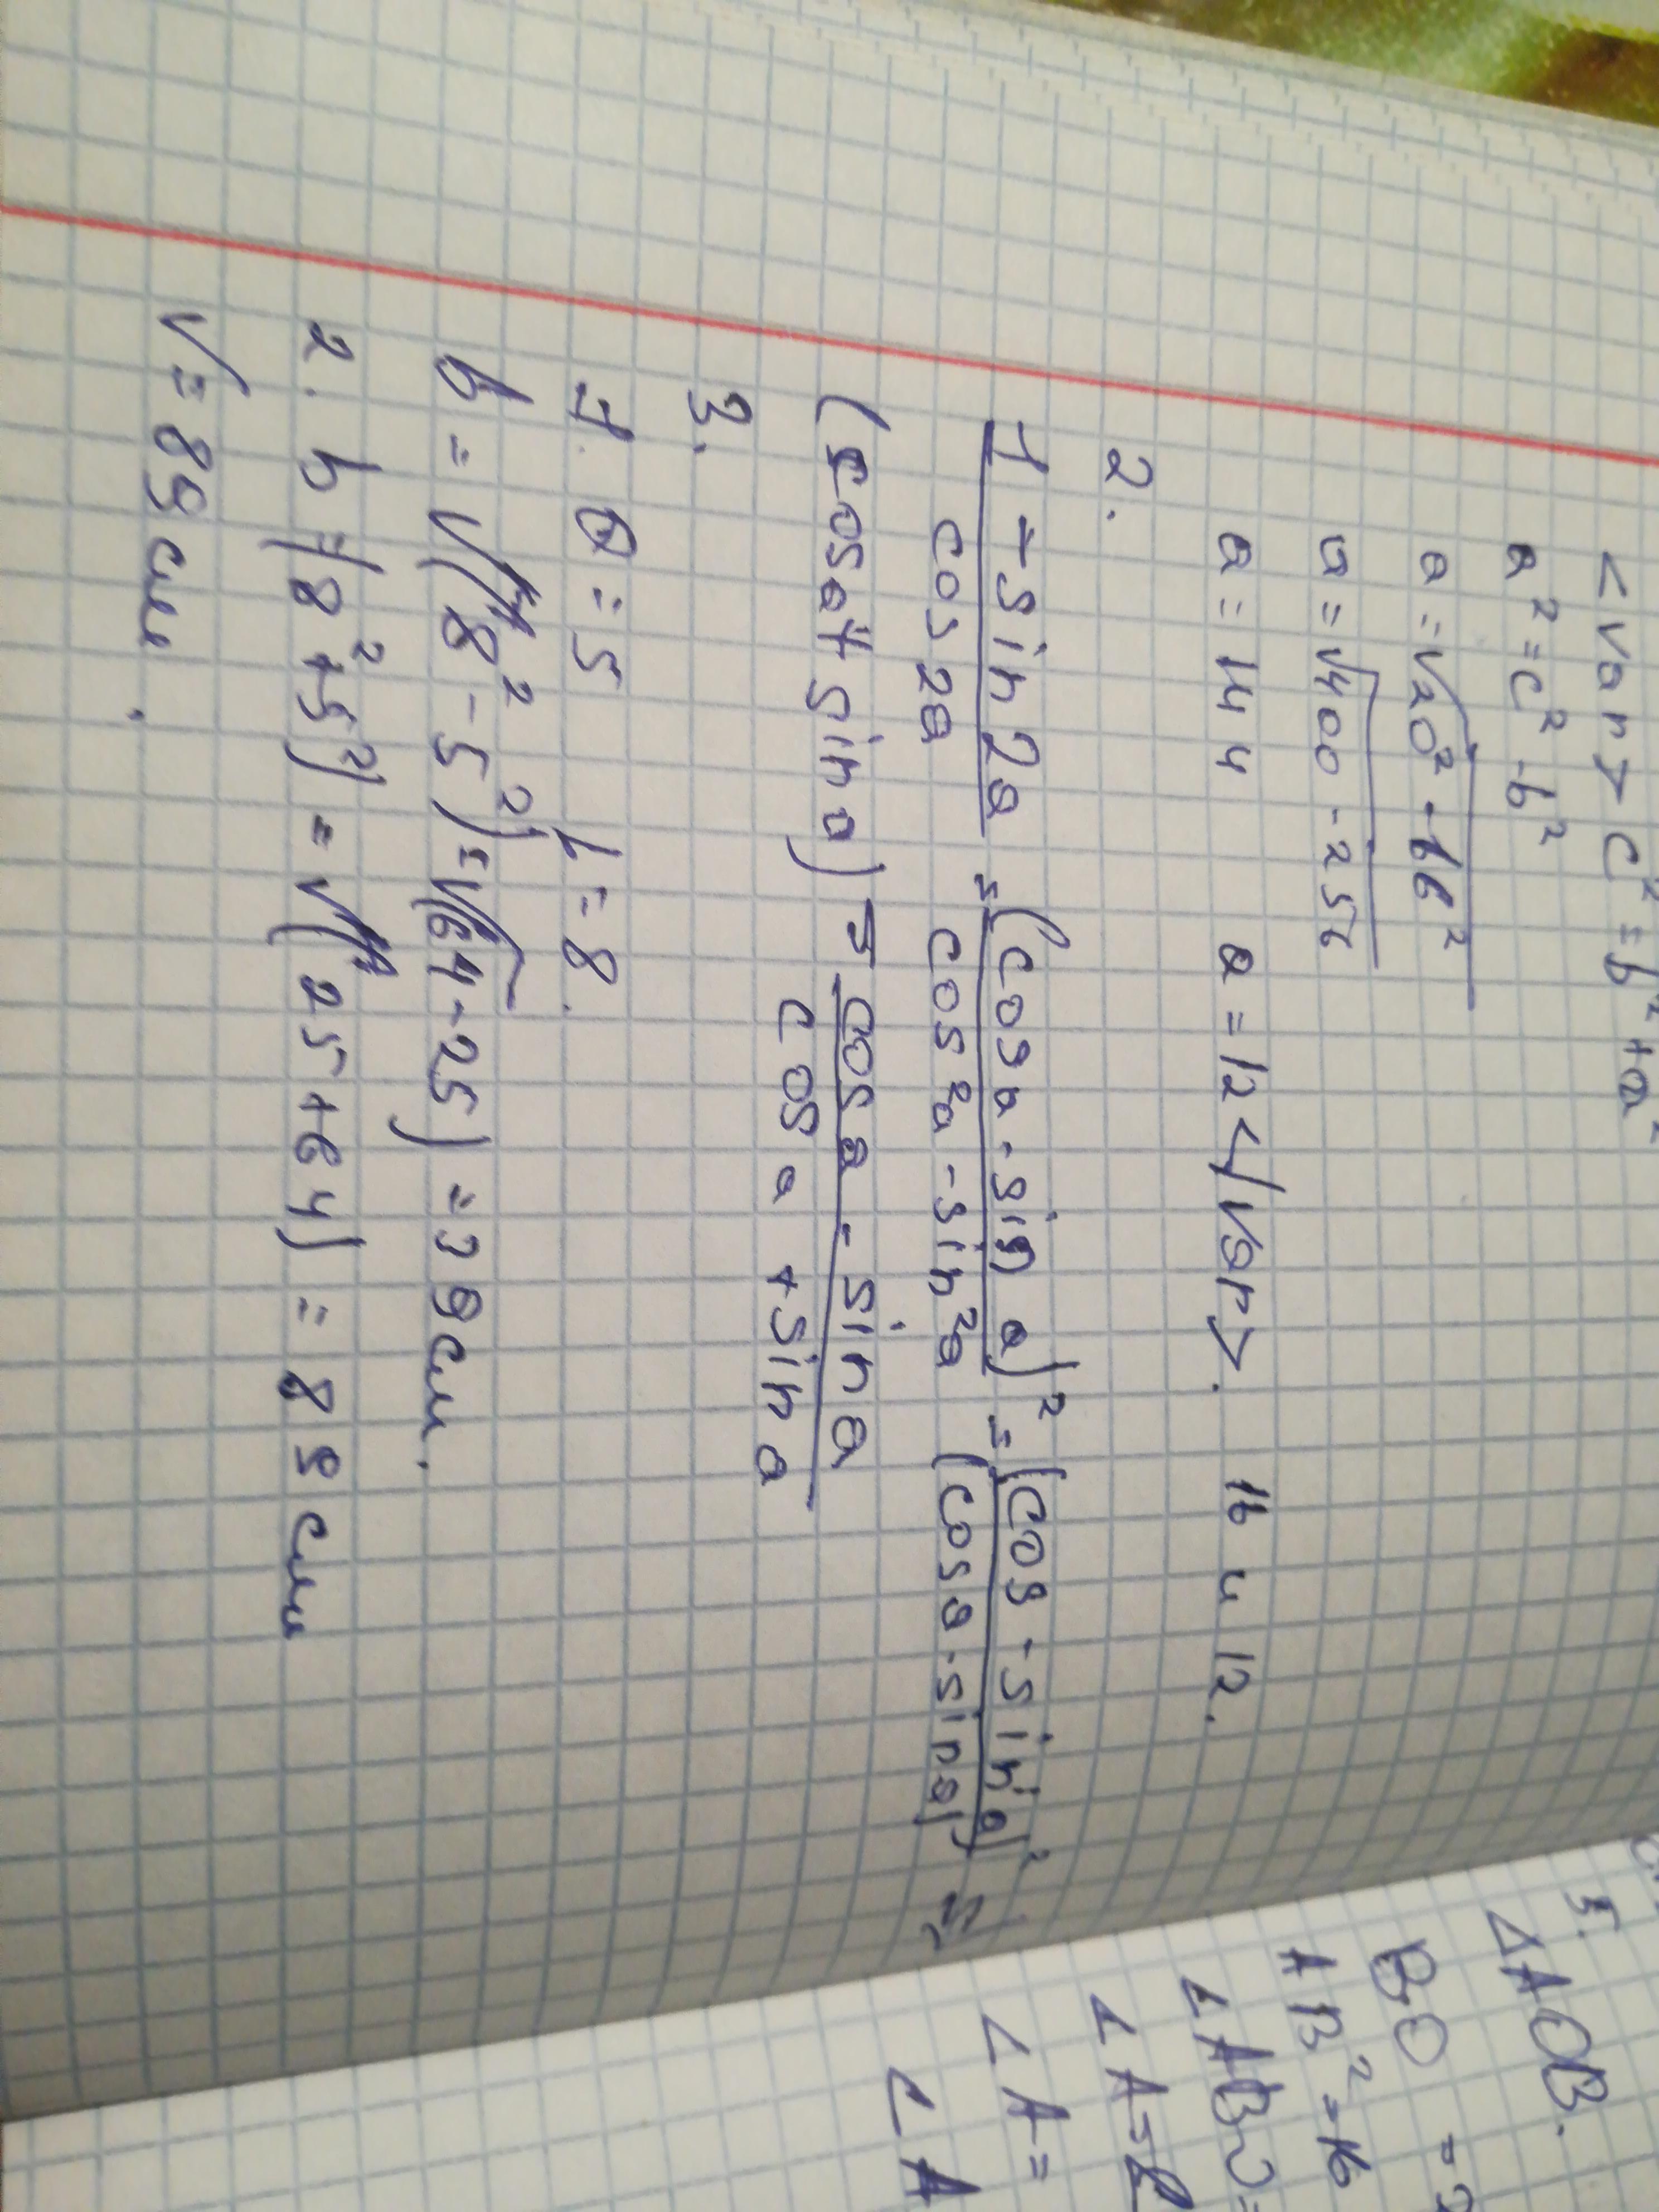 <var> c² = b² + a²
a² = c² - b²
a = √20² - 16²
a = √400 - 256
a = 144 a = 12</var>. 16 и 12.
2.
1 - sin 2a / cos 2a = (cos a - sin a)² / cos²a - sin²a = (cos - sin a)² / (cos a - sin a) =
(cos a + sin a) = cos a - sin a / cos a + sin a
3.
1. a = 5 L = 8.
b = √(8² - 5²) = √(64 - 25) = 39 см.
2. b = √(8² + 5²) = √(25 + 64) = 89 см
V = 89 см.
5.
ΔAOB.
BO =
AB² = 16
∠ABO =
∠A =
∠A =
∠A